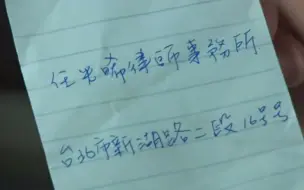 任米啷律師事務所
台北市新湖路二段16号号